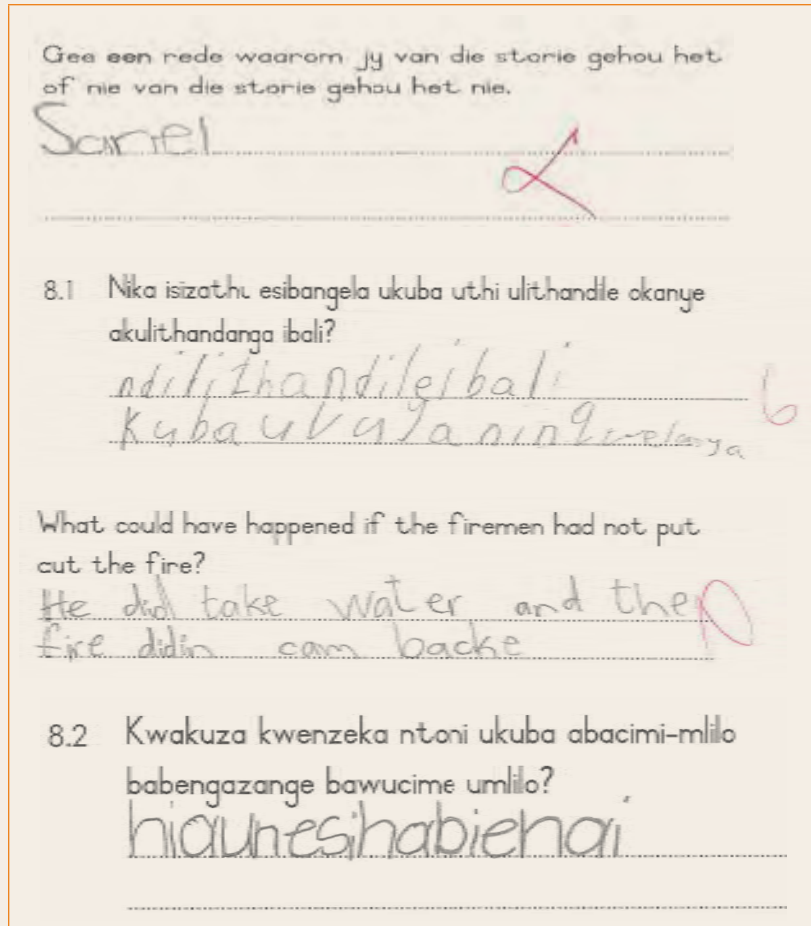 Gee een rede waarom jy van die storie gehou het
of nie van die storie gehou het nie.
Sariel
8.1 Nika isizathu esibangela ukuba uthi ulithandile okanye
akulithandanga ibali?
ndilithandile ibali
Kuba
What could have happened if the firemen had not put
cut the fire?
He did take water and the
fire didin cam backe
8.2 Kwakuza kwenzeka ntoni ukuba abacimi-mlilo
babengazange bawucime umlilo?